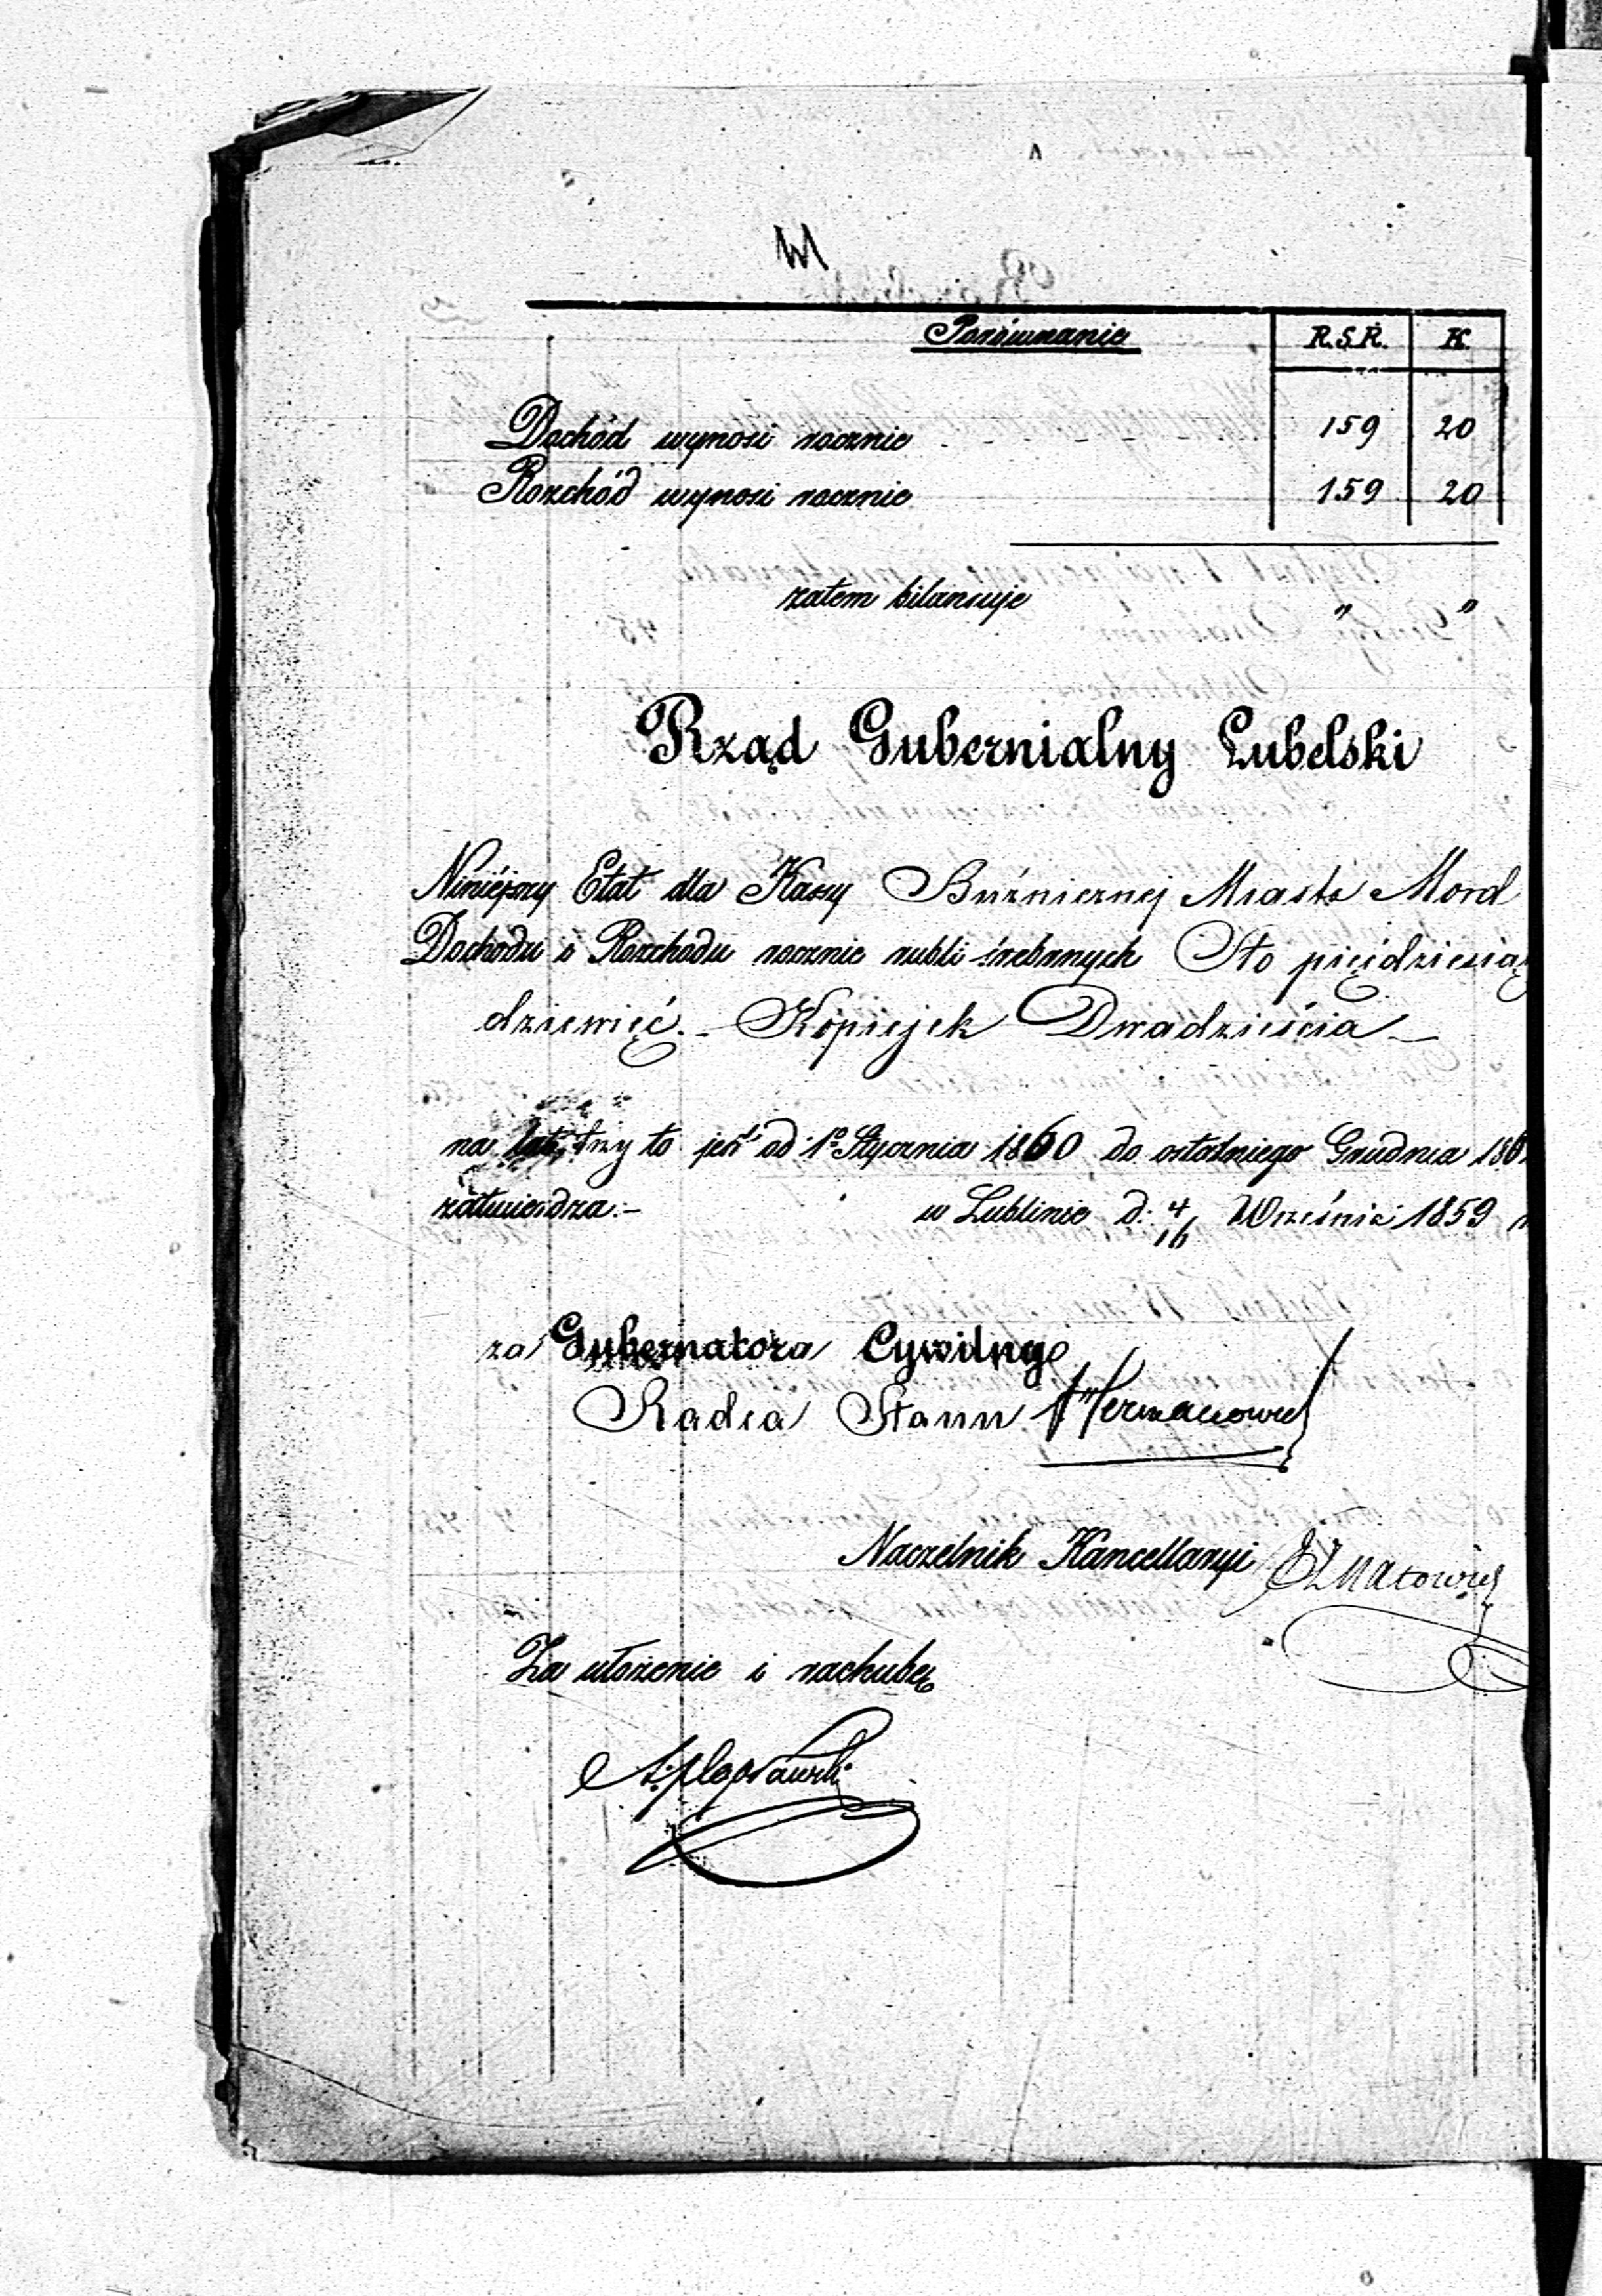 Porównanie R.S.R. K.
Dochód wynosi rocznie 159 20
Rozchód wynosi rocznie 159 20
zatem bilansuje " "
Rząd Gubernialny Lubelski
Niniéjszy Etat dla Kassy Bużnicznej Miasta Mord
Dochodu i Rozchodu rocznie rubli śrebrnych Sto pięćdziesią
dziewięć. – Kopiejek Dwadzieścia –
na lat trzy to jest od 1º Stycznia 1860 do ostatniego Grudnia 186
zatwierdza.– w Lublinie d: 4/16 Września 1859
za Gubernatora Cywilnego
Radca Stanu
Naczelnik Kancellaryi
Za ułożenie i rachubę